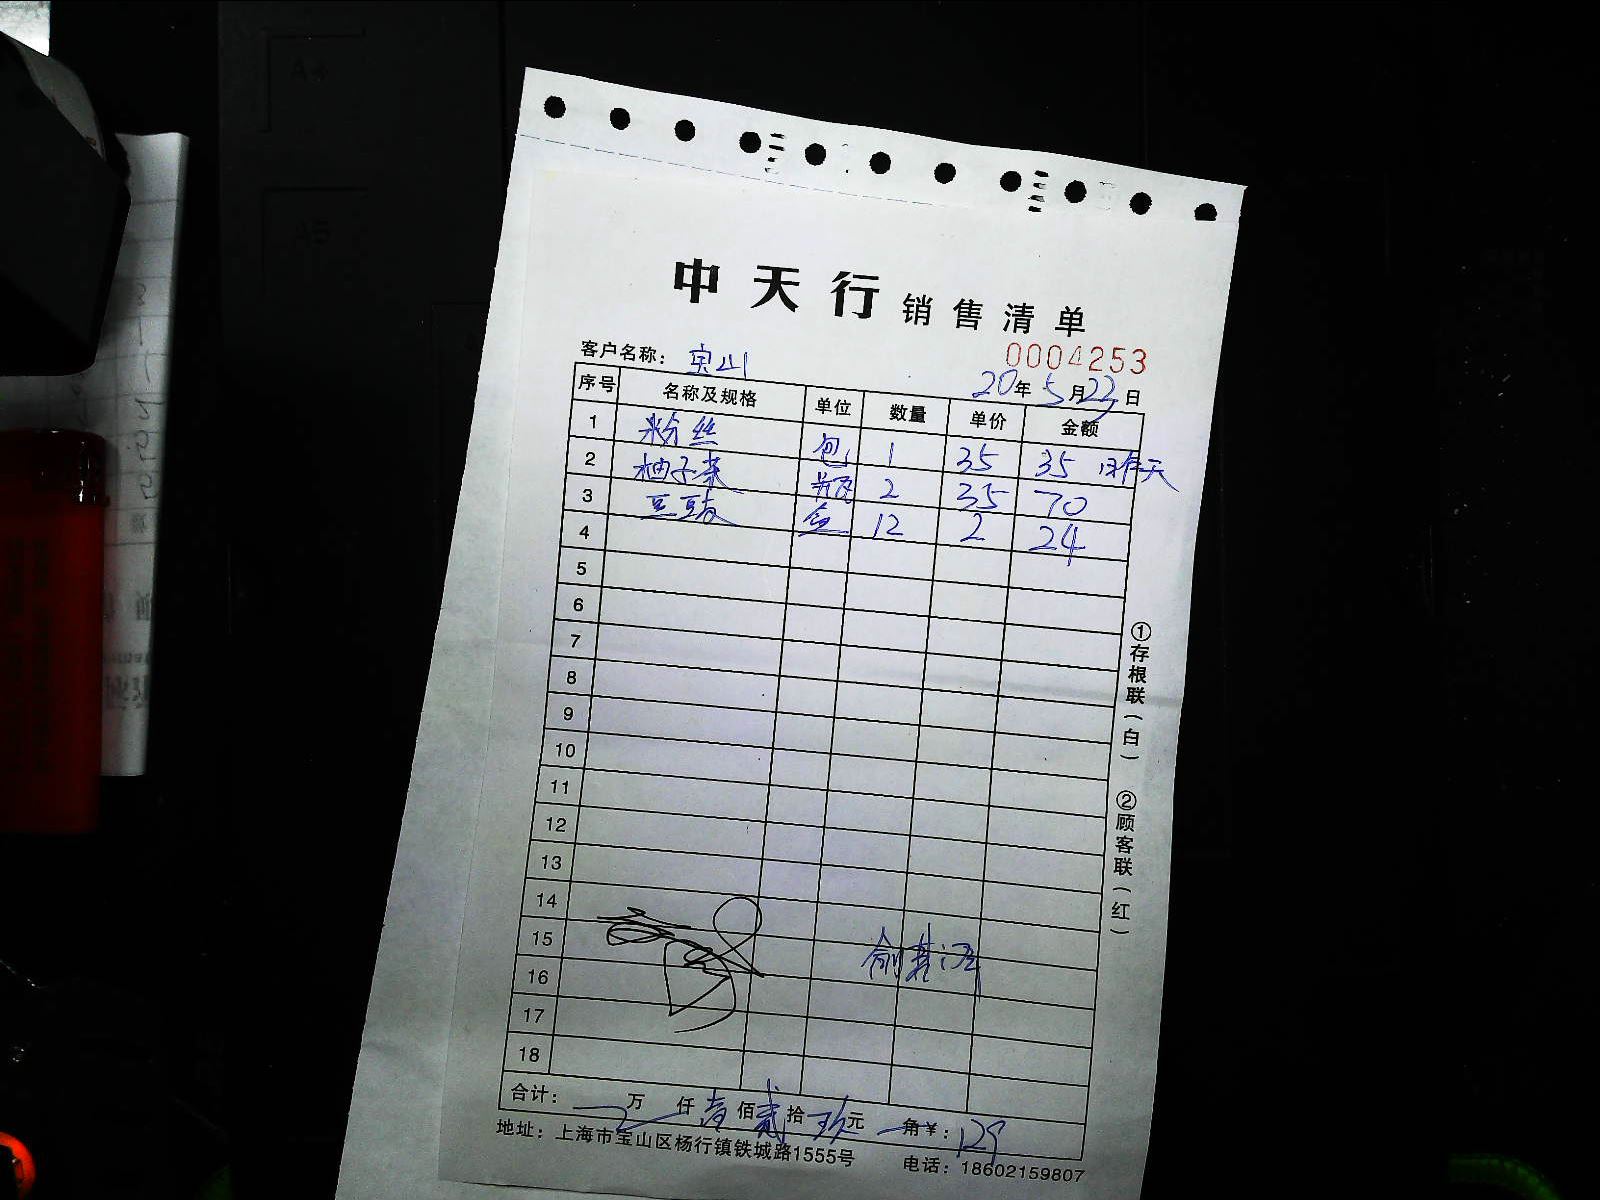 中天行 销售清单
0004253
客户名称： 宝山
20年 5月 23日
序号 名称及规格 单位 数量 单价 金额
1 粉丝 包 1 35 35 昨天
2 柚子茶 瓶 2 35 70
3 豆豉 盒 12 2 24
4
5
6
7
8
9
10
11
12
13
14
15
16
17
18
合计： 万 仟 壹佰 贰拾 玖元 角¥： 129
地址：上海市宝山区杨行镇铁城路1555号 电话：18602159807
①存根联（白） ②顾客联（红）
A4
A5